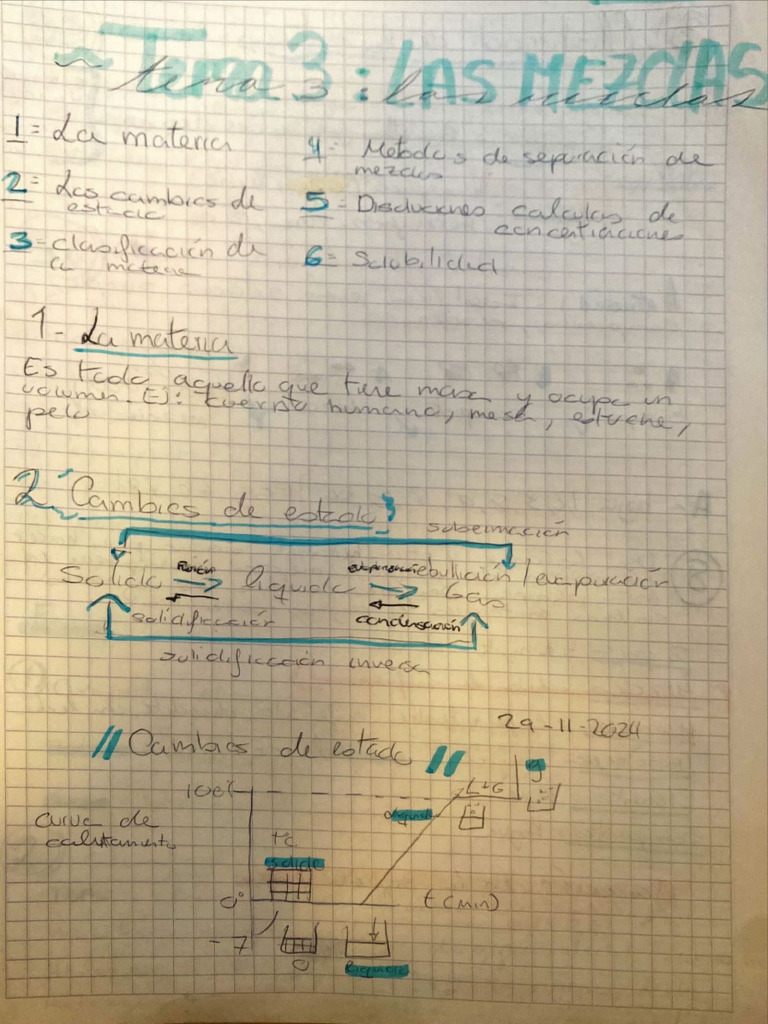 ~ Tema 3 : LAS MEZCLAS
tema 3 : las mezclas
1= La materia
2= Los cambios de
estado
3= clasificación de
la materia
4= Metodos de separación de
mezclas
5= Disoluciones calculos de
concentraciones
6= Solubilidad
1- La materia
Es todo aquello que tiene masa y ocupa un
volumen. Ej: cuerpo humano, mesa, estuche,
pelo
2 Cambios de estado
sublimación
Fusión
evaporación ebullición / evaporación
Solido líquido Gas
solidificación
condensación
solidificación inversa
29-11-2024
// Cambios de estado //
curva de
calentamiento
100º
L+G
g
Tºc
solido
0º
t (min)
-7